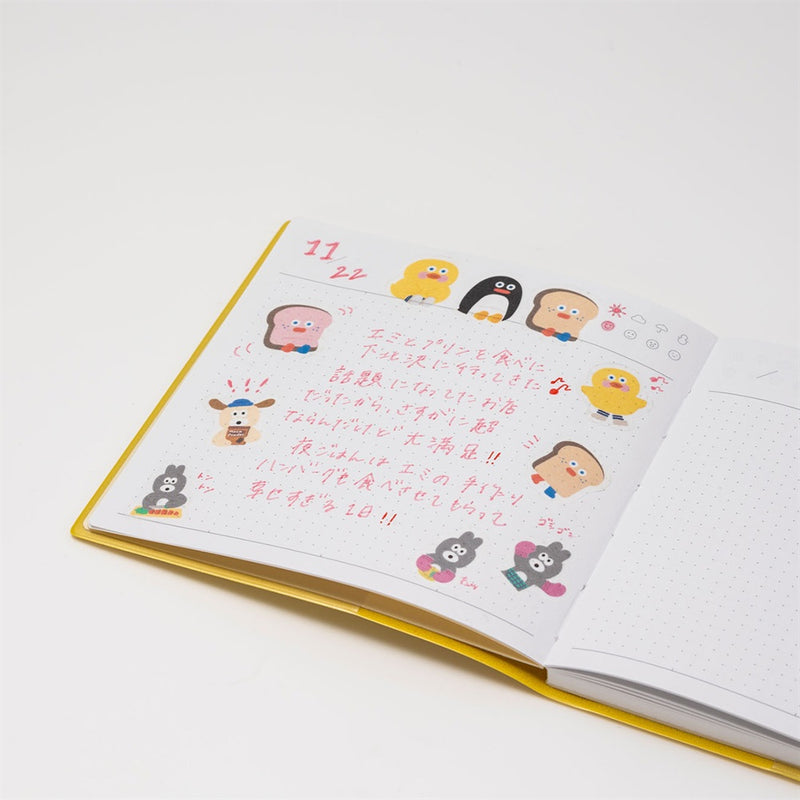 11/22
エミとプリンを食べに
下北沢に行ってきた
話題になってたお店
だったから、さすがに超
ならんだけど大満足!!
夜ごはんは エミの 手作り
ハンバーグも食べさせてもらって
幸せすぎる1日!!
トン
トン
ゴシゴシ